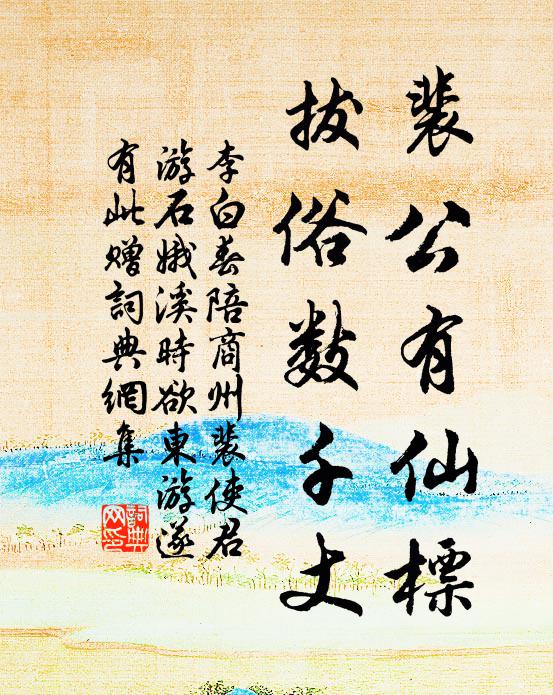 裴公有仙標
拔俗数千丈
李白春陪商州裴使君
游石娥溪時欲東游遂
有此贈詞典網集